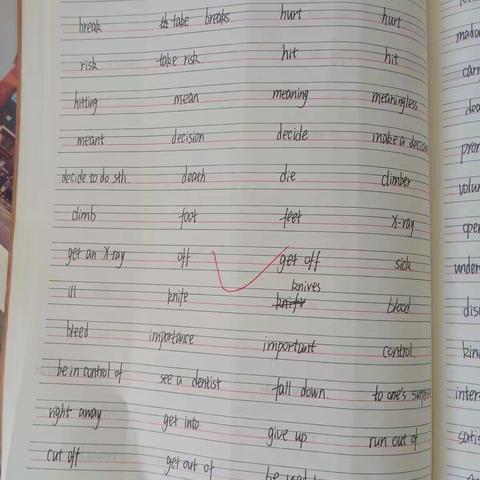 break take breaks hurt hurt
risk take risk hit hit
hitting mean meaning meaningless
meant decision decide make a
decide to do sth. death die climber
climb foot feet X-ray
get an X-ray off get off sick
knives
ill knife blood
bleed importance important control
be in control of see a dentist fall down to one's
right away get into give up run out of
cut off get out of